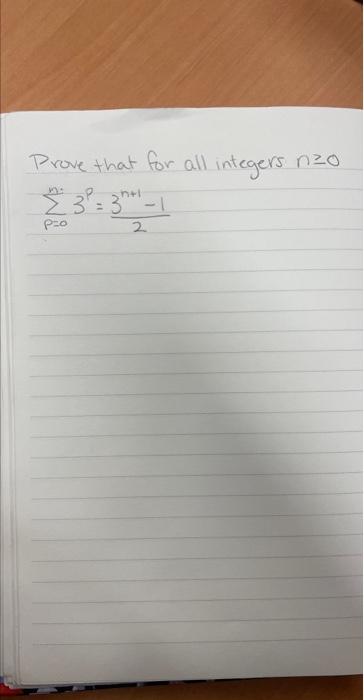 Prove that for all integers n≥0
n
∑ 3^p = 3^(n+1) - 1
p=0 2